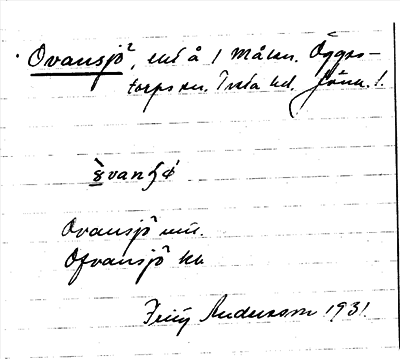 Ovansjö², ent å 1 Målen. Öggestorps sn. Tveta hd. Jönk. l.
òvanʃø
Ovansjö
Ofvansjö
Anderson 1931